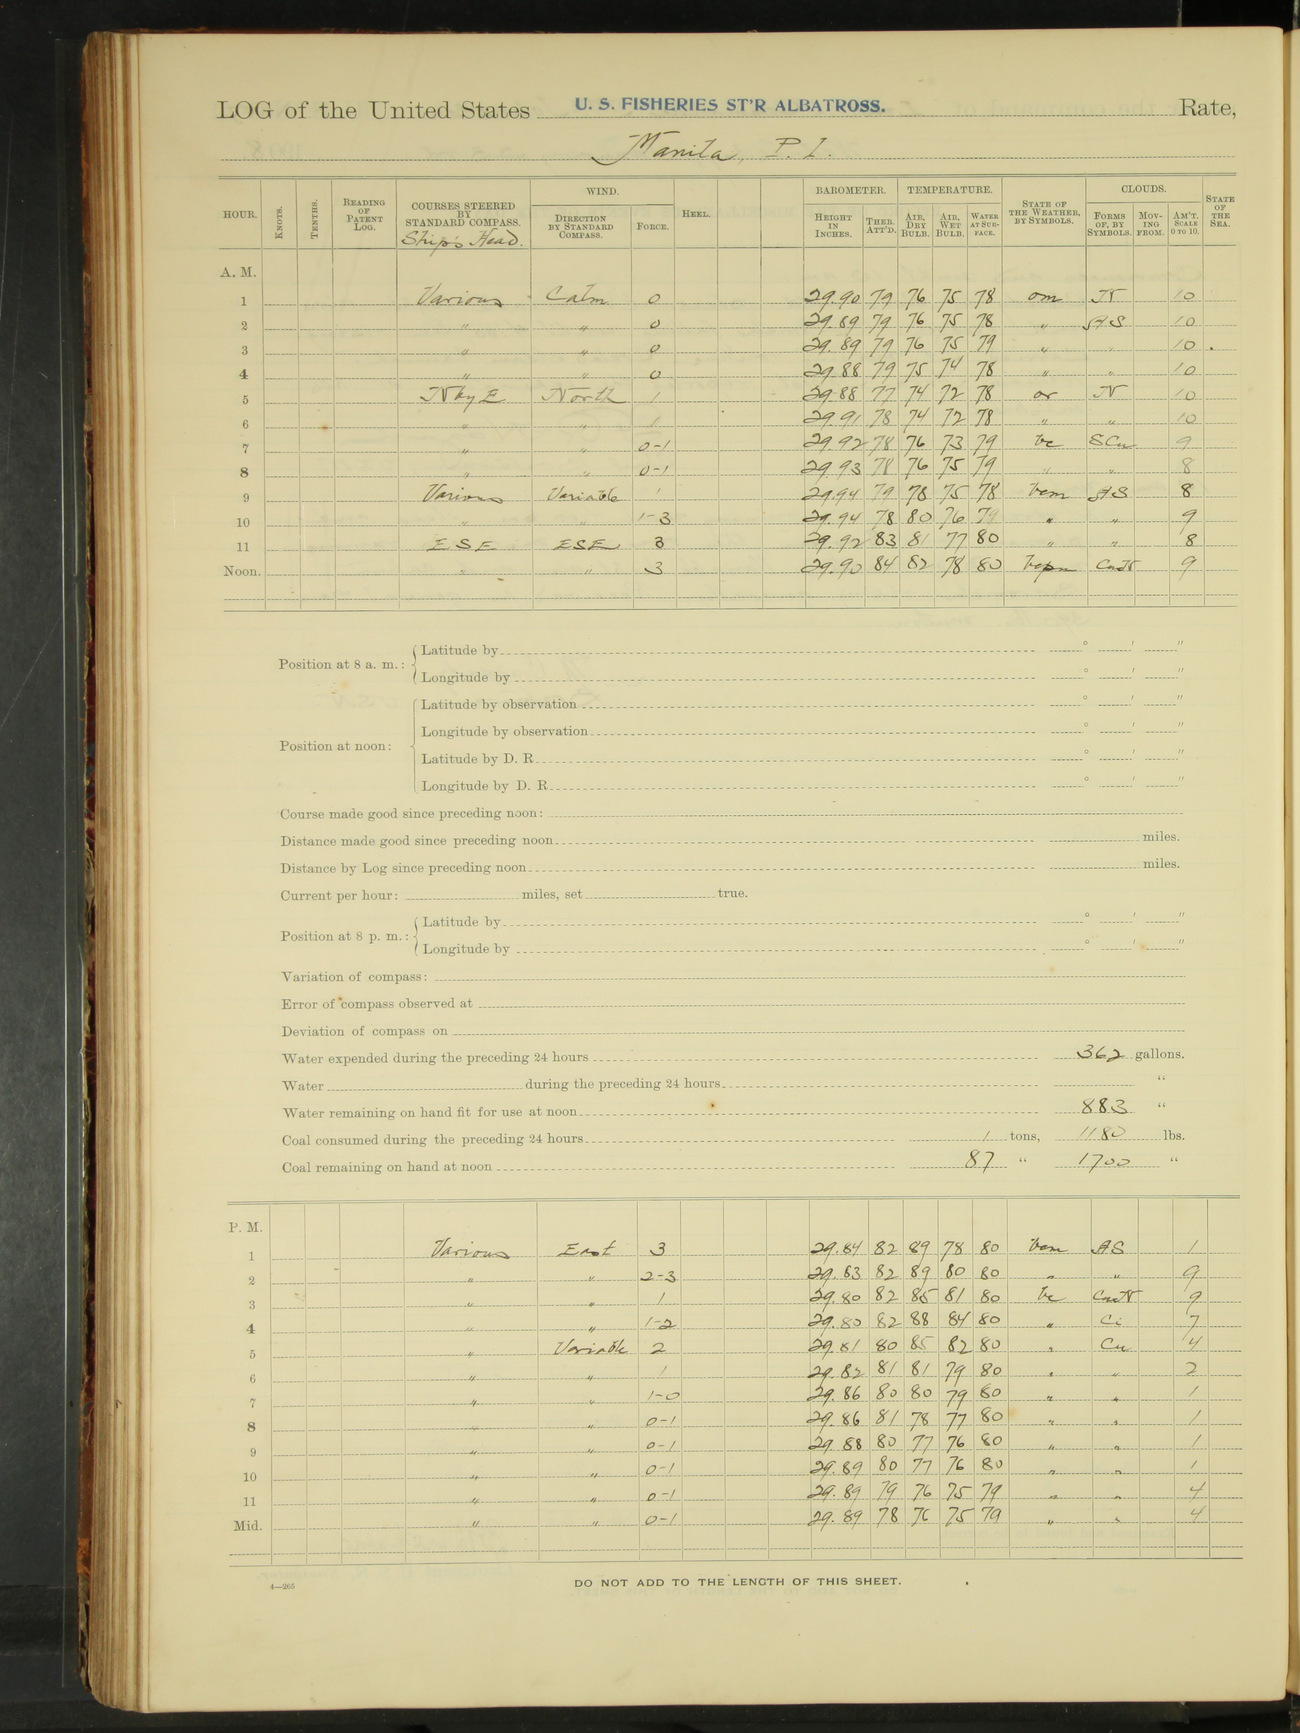 LOG of the United States U. S. FISHERIES ST'R ALBATROSS. Rate,
Manila, P. I.
HOUR. KNOTS. TENTHS. READING OF PATENT LOG. COURSES STEERED BY STANDARD COMPASS. Ship's Head. WIND. DIRECTION BY STANDARD COMPASS. FORCE. HEEL. BAROMETER. HEIGHT IN INCHES. THER. ATT'D. TEMPERATURE. AIR, DRY BULB. AIR, WET BULB. WATER AT SURFACE. STATE OF THE WEATHER, BY SYMBOLS. CLOUDS. FORMS OF, BY SYMBOLS. MOVING FROM. AM'T. SCALE 0 TO 10. STATE OF THE SEA.
A. M.
1 Various Calm 0 29.90 79 76 75 78 om N 10
2 " " 0 29.89 79 76 75 78 " AS 10
3 " " 0 29.89 79 76 75 79 " " 10
4 " " 0 29.88 79 75 74 78 " " 10
5 N by E North 1 29.88 77 74 72 78 or N 10
6 " " 1 29.91 78 74 72 78 " " 10
7 " " 0-1 29.92 78 76 73 79 bc SCu 9
8 " " 0-1 29.93 78 76 75 79 " " 8
9 Various Variable 1 29.94 79 78 75 78 bcm AS 8
10 " " 1-3 29.94 78 80 76 79 " " 9
11 ESE ESE 3 29.92 83 81 77 80 " " 8
Noon. " " 3 29.90 84 82 78 80 CuN 9
Position at 8 a. m.: Latitude by ° ' "
Longitude by ° ' "
Position at noon: Latitude by observation ° ' "
Longitude by observation ° ' "
Latitude by D. R. ° ' "
Longitude by D. R. ° ' "
Course made good since preceding noon:
Distance made good since preceding noon miles.
Distance by Log since preceding noon miles.
Current per hour: miles, set true.
Position at 8 p. m.: Latitude by ° ' "
Longitude by ° ' "
Variation of compass:
Error of compass observed at
Deviation of compass on
Water expended during the preceding 24 hours 362 gallons.
Water during the preceding 24 hours "
Water remaining on hand fit for use at noon 883 "
Coal consumed during the preceding 24 hours 1 tons, 1180 lbs.
Coal remaining on hand at noon 87 " 1700 "
P. M.
1 Various East 3 29.84 82 89 78 80 bcm AS 1
2 " " 2-3 29.83 82 89 80 80 " " 9
3 " " 1 29.80 82 85 81 80 bc CuN 9
4 " " 1-2 29.80 82 88 84 80 " Ci 7
5 " Variable 2 29.81 80 85 82 80 " Cu 4
6 " " 1 29.82 81 81 79 80 " " 2
7 " " 1-0 29.86 80 80 79 80 " " 1
8 " " 0-1 29.86 81 78 77 80 " " 1
9 " " 0-1 29.88 80 77 76 80 " " 1
10 " " 0-1 29.89 80 77 76 80 " " 1
11 " " 0-1 29.89 79 76 75 79 " " 4
Mid. " " 0-1 29.89 78 76 75 79 " " 4
4—265
DO NOT ADD TO THE LENGTH OF THIS SHEET.